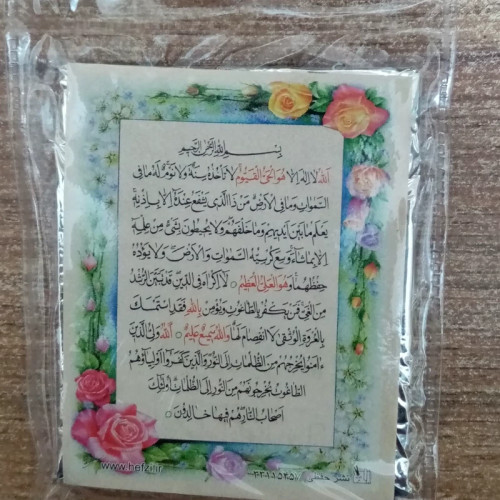 بِسْمِ اللهِ الرَّحْمنِ الرَّحيمِ
اَللهُ لا اِلهَ اِلّا هُوَ الْحَىُّ الْقَيُّومُ لا تَأْخُذُهُ سِنَةٌ وَلا نَوْمٌ لَهُ ما فِى
السَّمواتِ وَما فِى الْاَرْضِ مَنْ ذَا الَّذى يَشْفَعُ عِنْدَهُ اِلّا بِاِذْنِه
يَعْلَمُ ما بَيْنَ اَيْديهِمْ وَما خَلْفَهُمْ وَلا يُحيطُونَ بِشَىْءٍ مِنْ عِلْمِه
اِلّا بِما شاءَ وَسِعَ كُرْسِيُّهُ السَّمواتِ وَالْاَرْضَ وَلا يَؤُدُهُ
حِفْظُهُما وَهُوَ الْعَلِىُّ الْعَظيمُ لا اِكْراهَ فِى الدّينِ قَدْ تَبَيَّنَ الرُّشْدُ
مِنَ الْغَىِّ فَمَنْ يَكْفُرْ بِالطّاغُوتِ وَيُؤْمِنْ بِاللهِ فَقَدِ اسْتَمْسَكَ
بِالْعُرْوَةِ الْوُثْقى لَا انْفِصامَ لَها وَاللهُ سَميعٌ عَليمٌ اَللهُ وَلِىُّ الَّذينَ
ءامَنُوا يُخْرِجُهُمْ مِنَ الظُّلُماتِ اِلَى النُّورِ وَالَّذينَ كَفَرُوا اَوْلِياؤُهُمُ
الطّاغُوتُ يُخْرِجُونَهُمْ مِنَ النُّورِ اِلَى الظُّلُماتِ اُولئِكَ
اَصْحابُ النّارِ هُمْ فيها خالِدُونَ
www.hefzi.ir
نشر حفظی